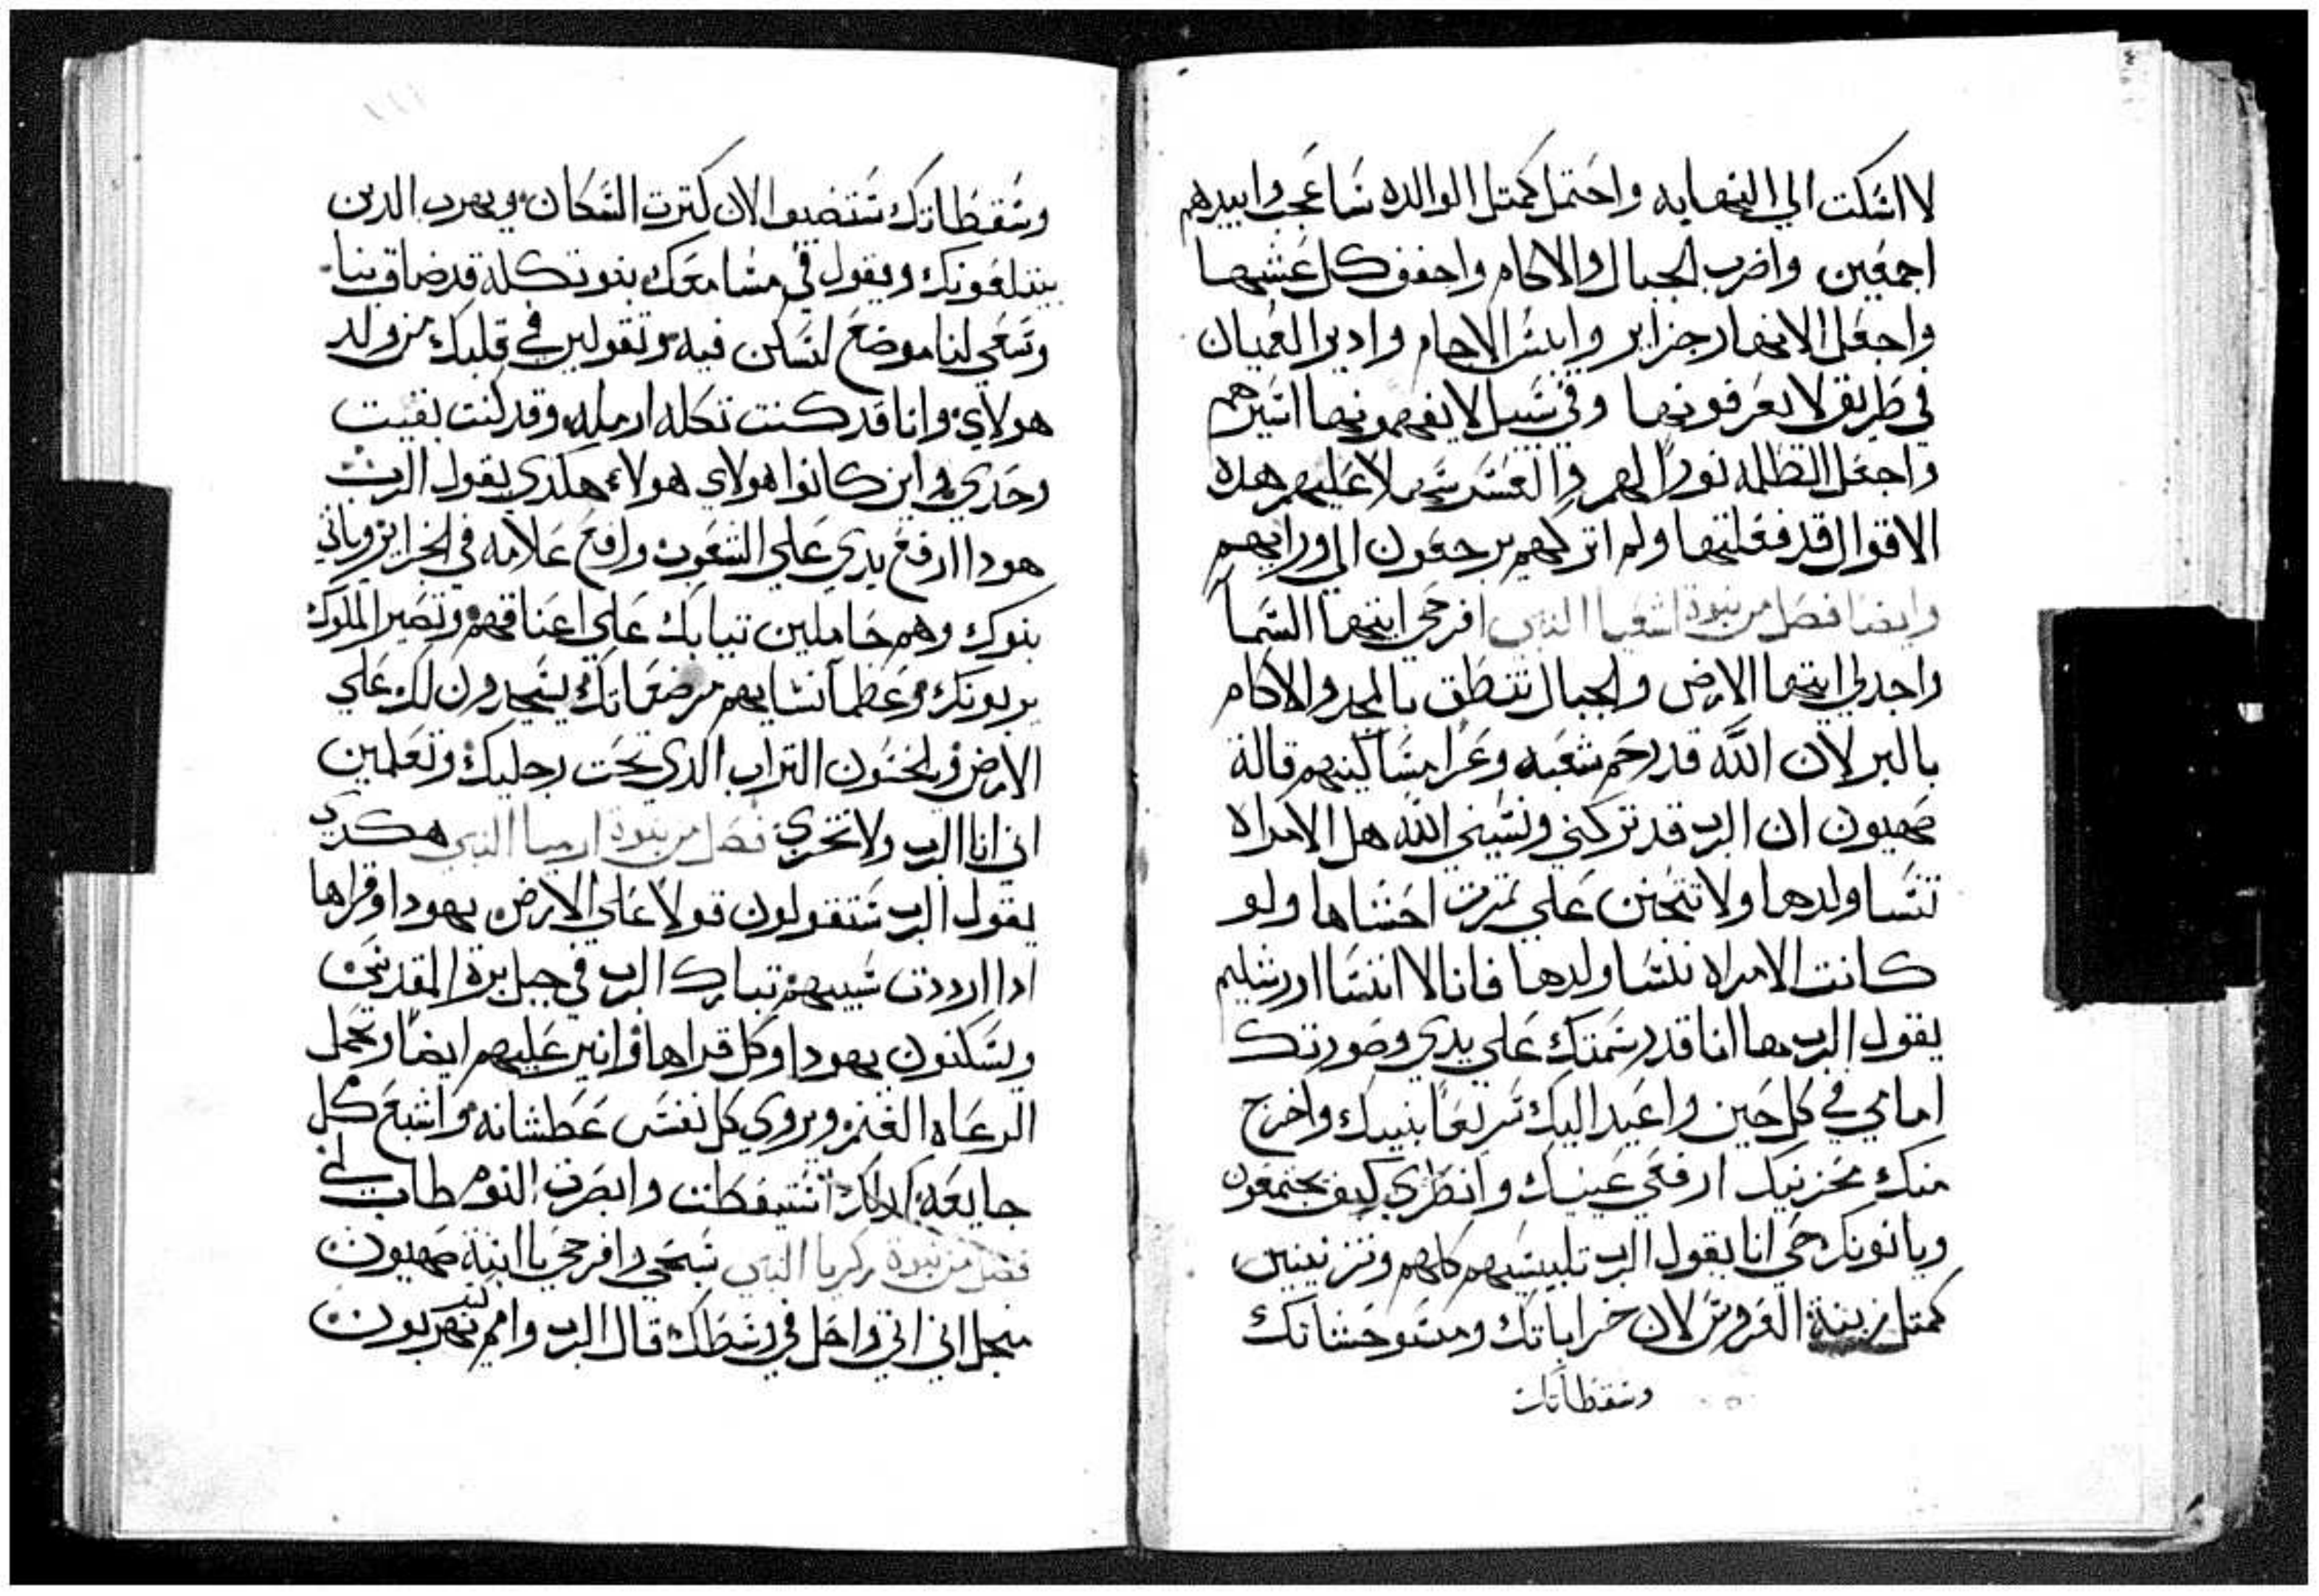 لا اسكت الي النهايه واحتمل كمتل الوالده ساعجب وابيدهم
اجمعين واضرب الجبال والاكام واجفف كل عشبها
واجعل الانهار جزاير وايبس الاجام وادير العميان
في طريق لا يعرفونها وفي سبيل لا يفهمونها اسيرهم
واجعل الظلمه نورا لهم والعسر سهلا عليهم هده
الاقوال قد فعلتها ولم اتركهم يرجعون الي ورايهم
وايضا فصل من نبوة اشعيا النبي افرحي ايتها السما
واجدلي ايتها الارض والجبال تنطق بالمجد والاكام
بالبر لان الله قد رحم شعبه وعزا مساكينهم قالة
صهيون ان الرب قد تركني ونسيني الله هل الامراه
تنسا ولدها ولا تتحنن علي تمرت احشاها ولو
كانت الامراه تنسا ولدها فانا لا انسا اورشليم
يقول الرب ها انا قد رسمتك علي يدي وصورتك
امامي في كل حين واعيد اليك سريعا بنيك واخرج
منك مخزنيك ارفعي عينيك وانظري كيف يجتمعون
وياتونك حي انا يقول الرب تلبسيهم كلهم وتتزينين
كمتل زينة العروس لان خراباتك ومستوحشاتك
وسقطاتك
وسقطاتك ستضيق الان كترت السكان ويهرب الدين
يبتلعونك ويقول في مسامعك بنو تكلة قد ضاق بنا
وسعي لنا موضع لنسكن فيه وتقولين في قلبك من ولد
هولاي وانا قد كنت تكله ارمله وقد كنت بقيت
وحدي واين كانوا هولاي هولاء هكدي يقول الرب
هودا ارفع يدي علي الشعوب وارفع علامه في الجزاير وياتي
بنوك وهم حاملين تيابك علي اعناقهم وتصير الملوك
يربونك وعظما نسايهم مرضعاتك يسجدون لك علي
الارض ويلحسون التراب الدي تحت رجليك وتعلمين
اني انا الرب ولا تخزي فصل من نبوة ارميا النبي هكدي
يقول الرب ستقولون قولا علي الارض يهودا وقراها
ادا ارددت سبيهم تبارك الرب في جبل بره المقدس
ويسكنون يهودا وكل قراها وانير عليهم ايضا وتحمل
الرعاه الغنم ويروي كل نفس عطشانه واشبع كل
جايعه لدلك استيقظت وابصرت النوم طاب لي
فصل من نبوة زكريا النبي سبحي وافرحي يا ابنة صهيون
من اجل اني اتي واحل في وسطك قال الرب وامم يهربون